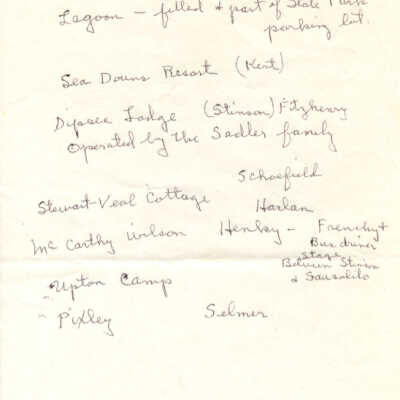 Lagoon - filled & part of State Park
parking lot.
Sea Downs Resort (Kent)
Dipsea Lodge (Stinson) Fitzhenry
Operated by the Sadler family
Schoefield
Stewart-Veal Cottage Harlan
McCarthy Wilson Henley - Frenchy &
Bus driver
stage
Between Stinson
& Sausalito
Upton Camp
Pixley Selmer